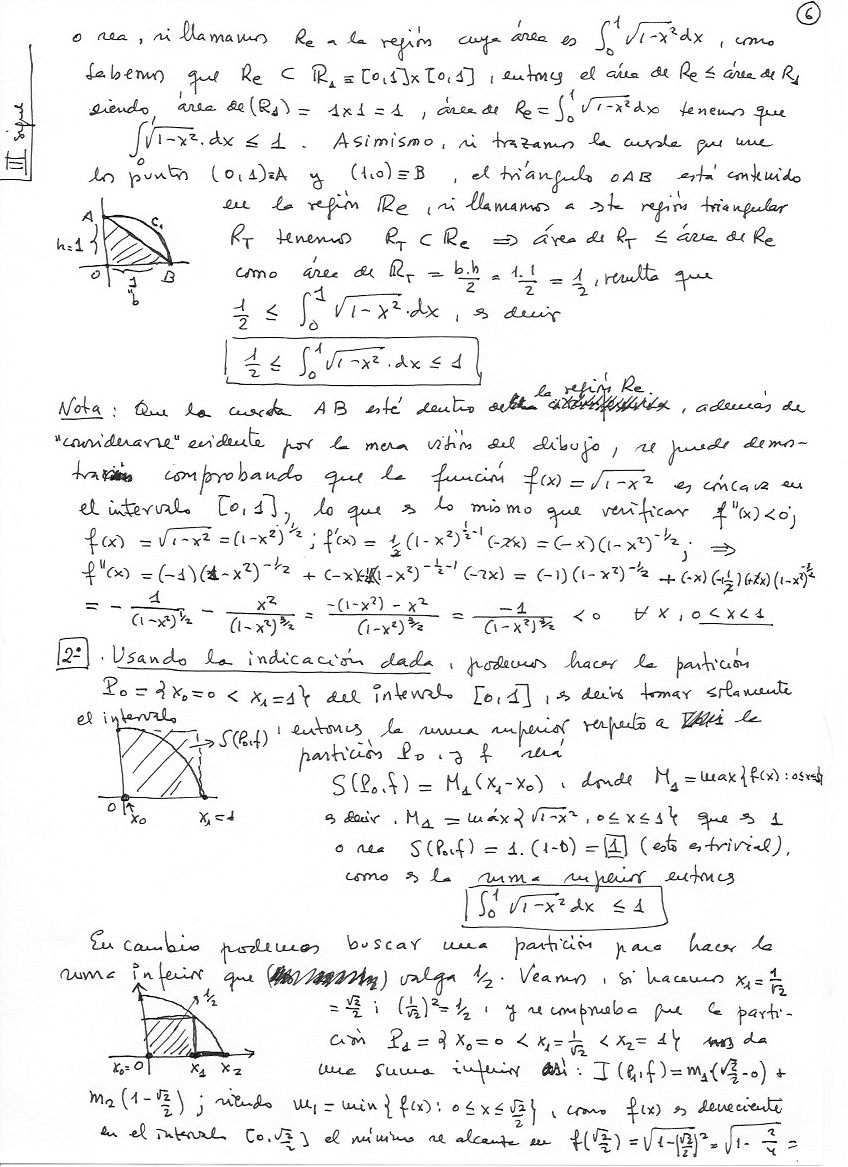 6
III sigue
o sea, si llamamos Re a la región cuya área es ∫₀¹ √(1-x²) dx, como
sabemos que Re ⊂ R₁ ≡ [0,1]x[0,1], entonces el área de Re ≤ área de R₁
siendo, área de (R₁) = 1x1 = 1, área de Re = ∫₀¹ √(1-x²) dx tenemos que
∫₀¹ √(1-x²)·dx ≤ 1. Asimismo, si trazamos la cuerda que une
los puntos (0,1)≡A y (1,0)≡B, el triángulo OAB está contenido
en la región Re, si llamamos a este región triangular
R_T tenemos R_T ⊂ Re ⇒ área de R_T ≤ área de Re
como área de R_T = b.h/2 = 1.1/2 = 1/2, resulta que
1/2 ≤ ∫₀¹ √(1-x²)·dx, es decir
1/2 ≤ ∫₀¹ √(1-x²)·dx ≤ 1
A C₁
h=1
O 1 B
b
Nota: Que la cuerda AB esté dentro de la región Re, además de
"considerarse" evidente por la mera visión del dibujo, se puede demos-
trar comprobando que la función f(x) = √(1-x²) es cóncava en
el intervalo [0,1], lo que es lo mismo que verificar f''(x)<0;
f(x) = √(1-x²) = (1-x²)^(1/2); f'(x) = 1/2 (1-x²)^(1/2-1) (-2x) = (-x)(1-x²)^(-1/2); ⇒
f''(x) = (-1)(1-x²)^(-1/2) + (-x)(-1/2)(1-x²)^(-1/2-1) (-2x) = (-1)(1-x²)^(-1/2) + (-x)(-1/2)(-2x)(1-x²)^(-3/2)
= - 1/(1-x²)^(1/2) - x²/(1-x²)^(3/2) = (-(1-x²) - x²)/(1-x²)^(3/2) = -1/(1-x²)^(3/2) < 0 ∀ x, 0 < x < 1
2º. Usando la indicación dada, podemos hacer la partición
P₀ = {x₀=0 < x₁=1} del intervalo [0,1], es decir tomar solamente
el intervalo, entonces la suma superior respecto a la
partición P₀, y f será
S(P₀,f) = M₁(x₁-x₀), donde M₁ = max{f(x): 0≤x≤1}
es decir, M₁ = máx{√(1-x²), 0≤x≤1} que es 1
o sea S(P₀,f) = 1.(1-0) = 1 (esto es trivial),
como es la suma superior entonces
∫₀¹ √(1-x²) dx ≤ 1
S(P₀,f)
O x₀ x₁=1
En cambio podemos buscar una partición para hacer la
suma inferior que valga 1/2. Veamos, si hacemos x₁ = 1/√2
= √2/2; (1/√2)² = 1/2, y se comprueba que la parti-
ción P₁ = {x₀=0 < x₁=1/√2 < x₂=1} nos da
una suma inferior así: I(P₁,f) = m₁(√2/2-0) +
m₂(1-√2/2); siendo m₁ = min{f(x): 0≤x≤√2/2}, como f(x) es decreciente
en el intervalo [0,√2/2] el mínimo se alcanza en f(√2/2) = √(1-(√2/2)²) = √(1-2/4) =
1/2
x₀=0 x₁ x₂